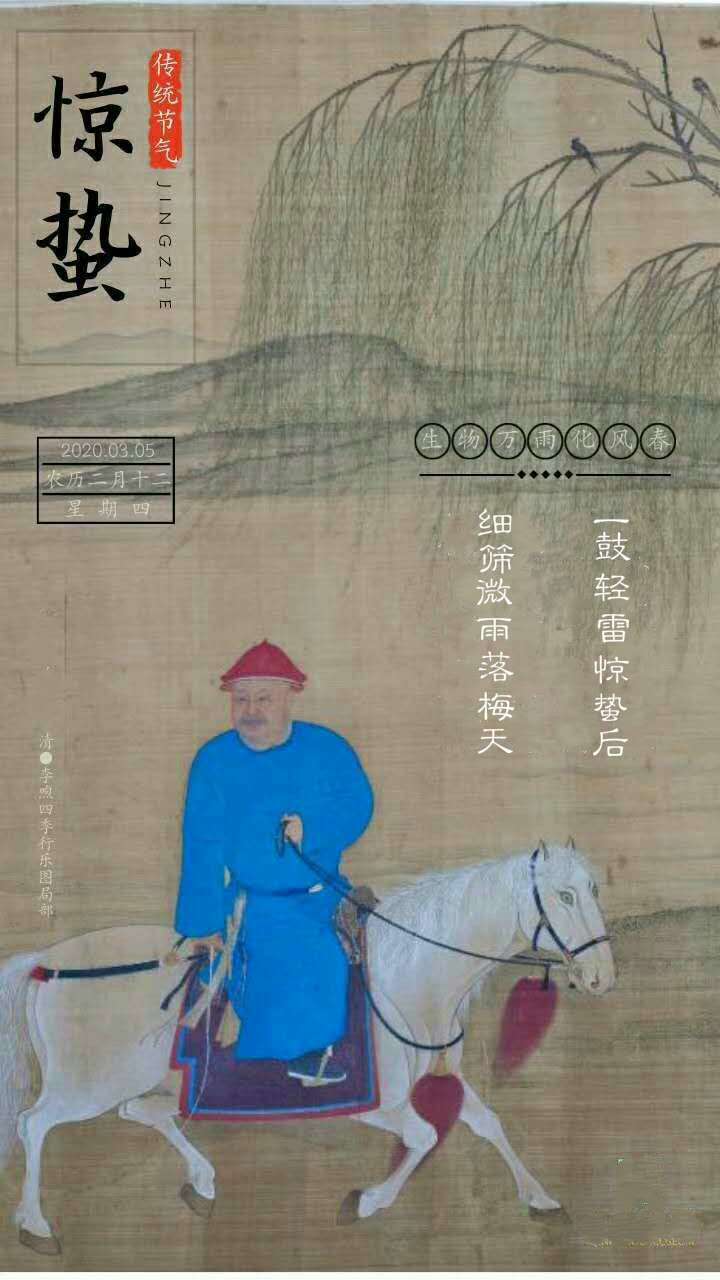 惊蛰
传统节气
JINGZHE
2020.03.05
农历二月十二
星期四
春风化雨万物生
一鼓轻雷惊蛰后
细筛微雨落梅天
清●李煦四季行乐图局部